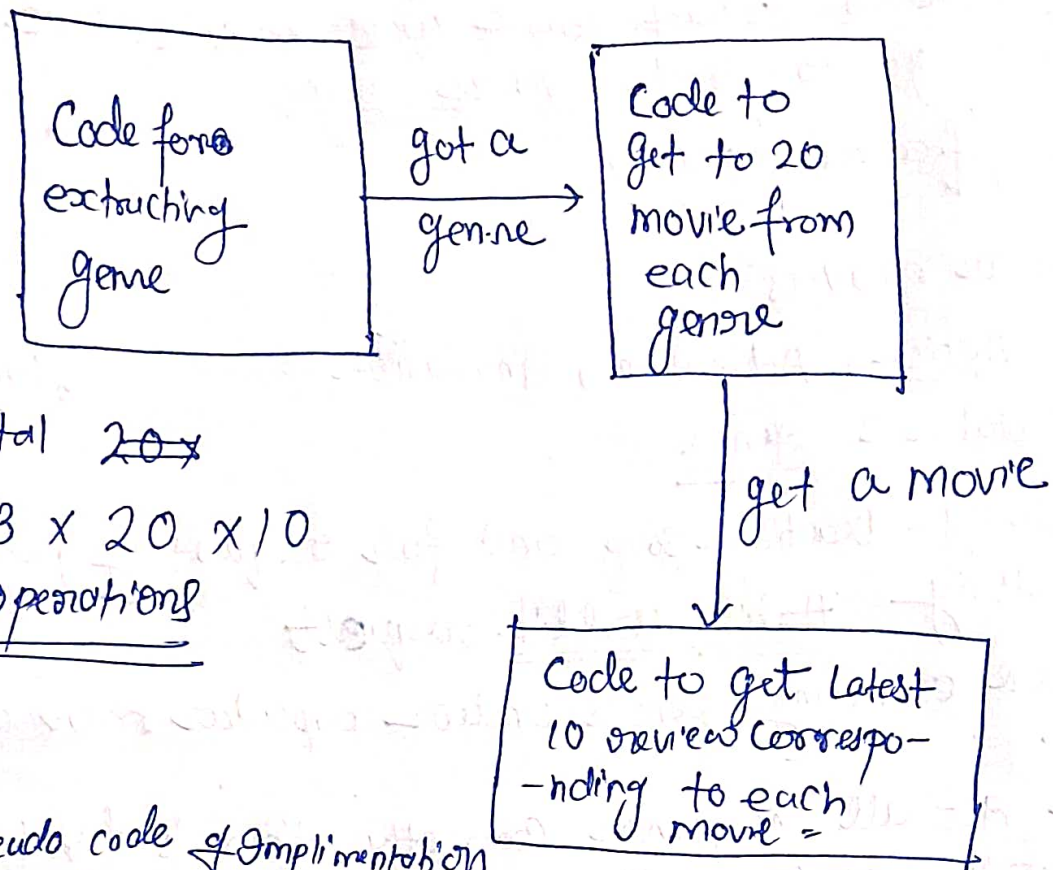 Code for
extracting
genre
got a
genre
Code to
get to 20
movie from
each
genre
tal 20x
3 x 20 x 10
perations
get a movie
Code to get Latest
10 review Correspo-
-nding to each
movie =
eudo code of Implimentation